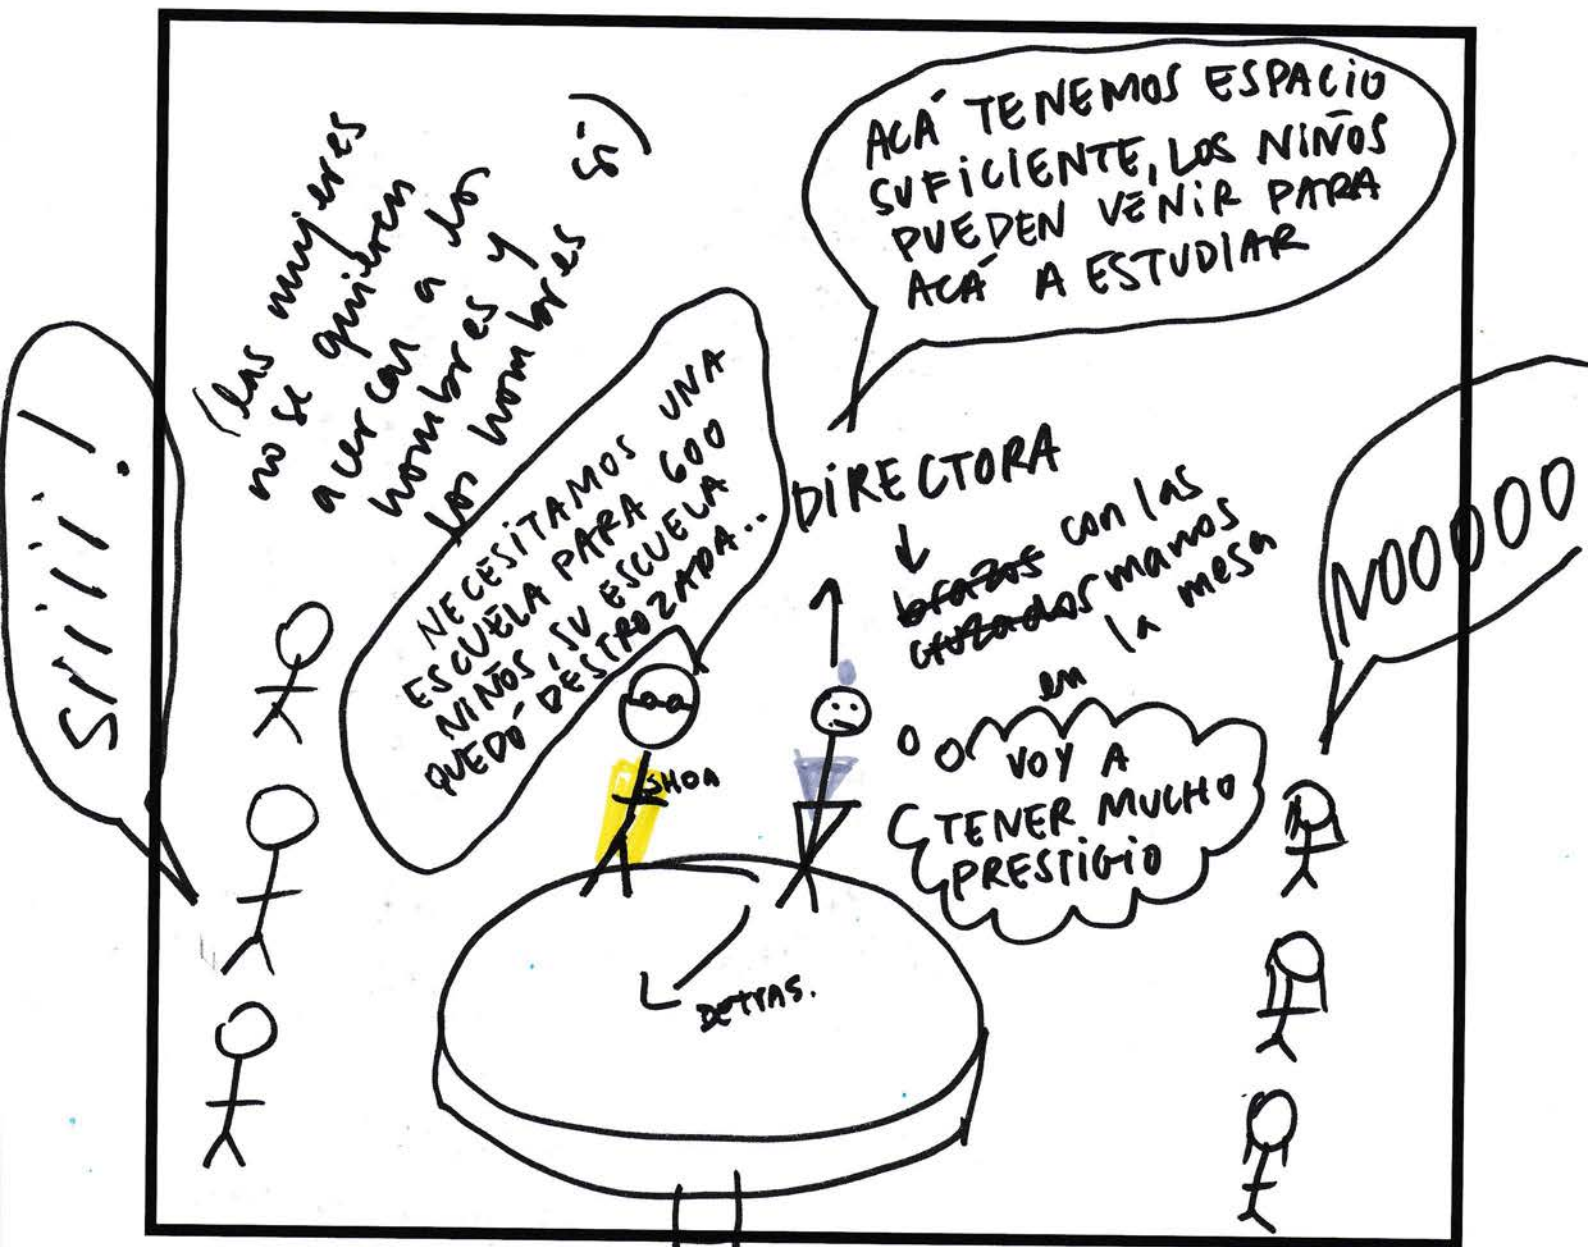 (las mujeres
no se quieren
acercar a los
hombres y
los hombres sí)
ACÁ TENEMOS ESPACIO
SUFICIENTE, LOS NIÑOS
PUEDEN VENIR PARA
ACÁ A ESTUDIAR
SIIIII!
NECESITAMOS UNA
ESCUELA PARA 600
NIÑOS, SU ESCUELA
QUEDÓ DESTROZADA...
DIRECTORA
brazos con las
cruzados manos
en la mesa
NOOOOO
SHOA
VOY A
TENER MUCHO
PRESTIGIO
DETRAS.